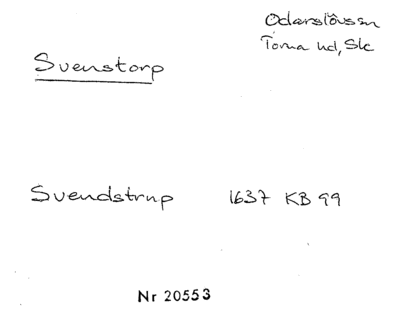 Odarslövs sn
Torna hd, Sk
Svenstorp
Svendstrup 1637 KB 99
Nr 20553